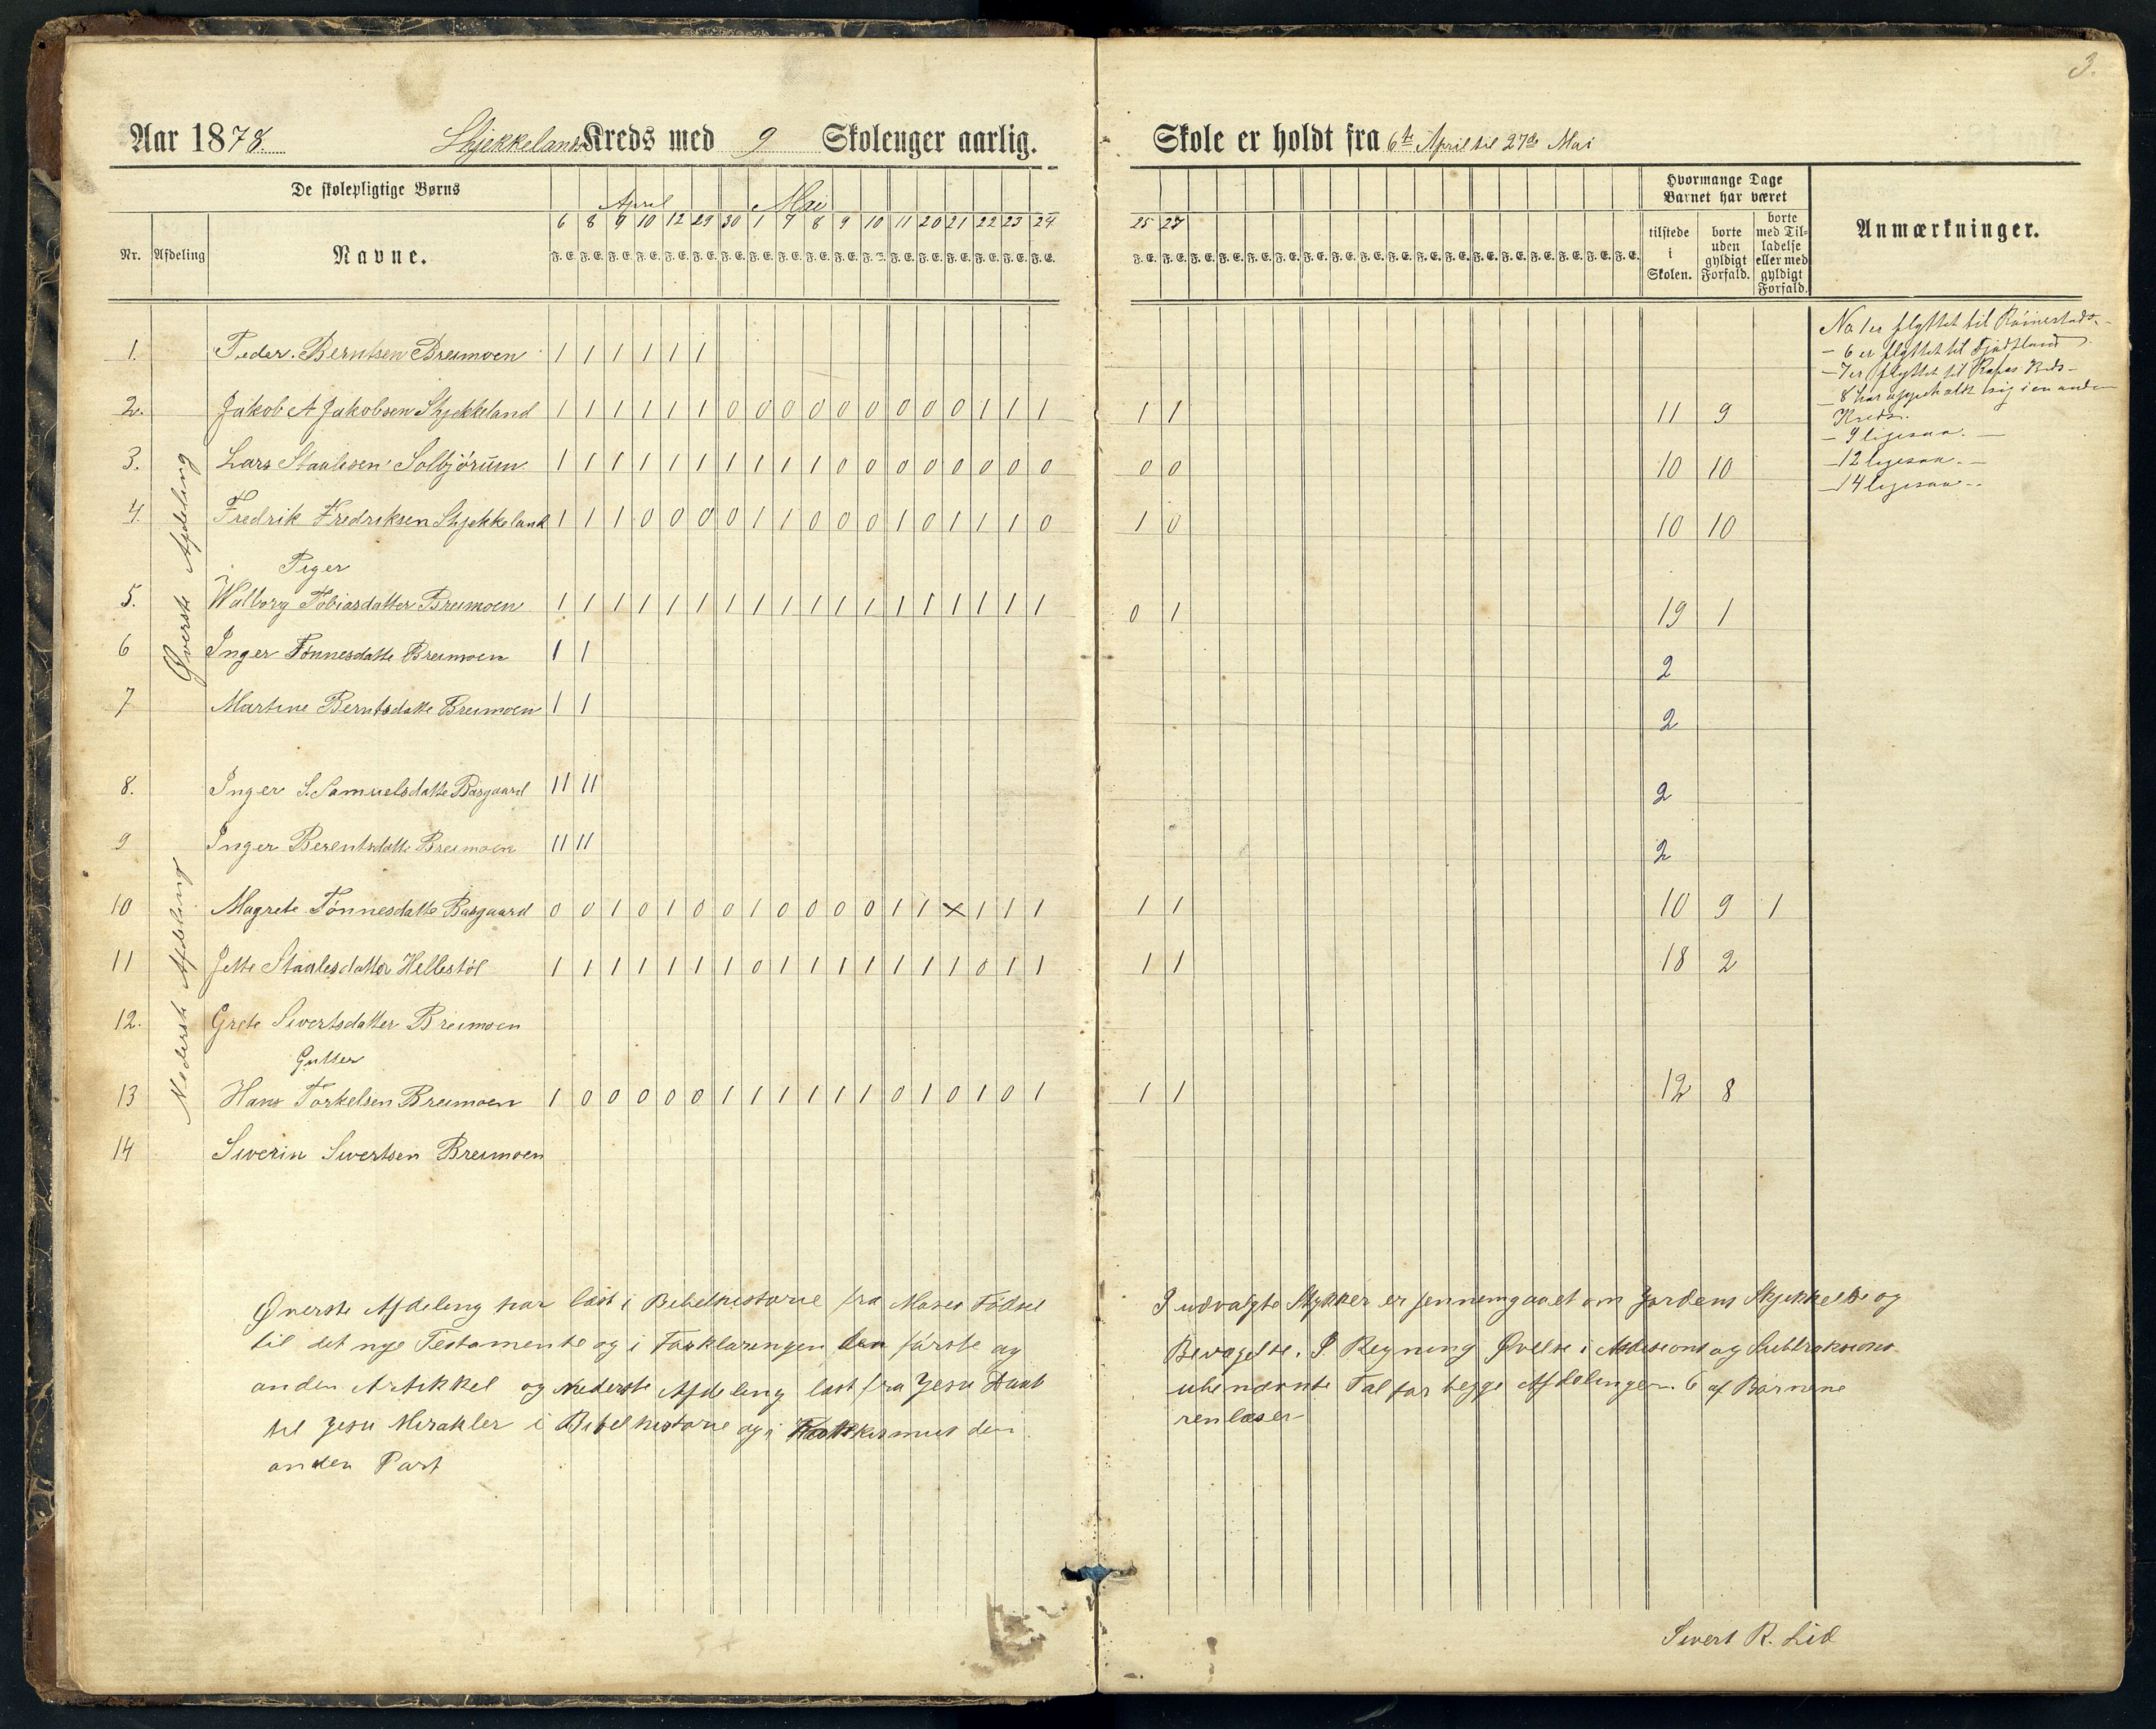 3.
Aar 1878. Skjekkelands Kreds med 9 Skolenger aarlig.
Skole er holdt fra 6te April til 27de Mai
De skolepligtige Børns
April Mai
Hvormange Dage Barnet har været
Nr. Afdeling Navne.
6 8 9 10 12 29 30 1 7 8 9 10 11 20 21 22 23 24
25 27
F. E. F. E. F. E. F. E. F. E. F. E. F. E. F. E. F. E. F. E. F. E. F. E. F. E. F. E. F. E. F. E. F. E. F. E.
F. E. F. E. F. E. F. E. F. E. F. E. F. E. F. E. F. E. F. E. F. E. F. E. F. E. F. E. F. E. F. E. F. E. F. E.
tilstede i Skolen.
borte uden gyldigt Forfald.
borte med Tilladelse eller med gyldigt Forfald.
Anmærkninger.
Øverste Afdeling
1. Peder. Berntsen Breimoen 1 1 1 1 1 1
2. Jakob A Jakobsen Skjekkeland 1 1 1 1 1 1 0 0 0 0 0 0 0 0 0 1 1 1 1 1 11 9
3. Lars Staalesen Solbjørum 1 1 1 1 1 1 1 1 1 1 0 0 0 0 0 0 0 0 0 0 10 10
4. Fredrik Fredriksen Skjekkeland 1 1 1 0 0 0 0 1 1 0 0 0 1 0 1 1 1 0 1 0 10 10
Piger
5. Walborg Tobiasdatter Breimoen 1 1 1 1 1 1 1 1 1 1 1 1 1 1 1 1 1 1 0 1 19 1
6 Inger Tønnesdatte Breimoen 1 1 2
7 Martine Berntsdatte Breimoen 1 1 2
Nederste Afdeling
8. Inger S. Samuelsdatte Basgaard 11 11 2
9 Inger Berentsdatte Breimoen 11 11 2
10 Magrete Tønnesdatte Basgaard 0 0 1 0 1 0 0 1 0 0 0 0 1 1 x 1 1 1 1 1 10 9 1
11 Jette Staalesdatter Hellestøl 1 1 1 1 1 1 1 0 1 1 1 1 1 1 1 0 1 1 1 1 18 2
12. Grete Sivertsdatter Breimoen
Gutter
13 Hans Torkelsen Breimoen 1 0 0 0 0 0 1 1 1 1 1 1 0 1 0 1 0 1 1 1 12 8
14 Siverin Sivertsen Breimoen
No 1 er flyttet til Røinestads.
- 6 er flyttet til Fjodtland
- 7 er flyttet til Kreds -
- 8 har oppeholdt sig i en anden
Kreds.
- 9 ligesaa. -
- 12 ligesaa. -
- 14 ligesaa. -
Øverste Afdeling har læst i Bibelhistorie fra Moses Fødsel
til det nye Testamente og i Forklaringen den første og
anden Artikkel og Nederste Afdeling læst fra Jesu Daab
til Jesu Mirakler i Bibelhistorie og i den
anden Part
I udvalgte Stykker er jennemgaaet om Jordens Skjekkelse og
Bevægelse. I Regning Øvelse i Addisions og Subtraksions
ubenævnte Tal for begge Afdelinger. 6 af Børnene
renlæser
Sivert R. Lid